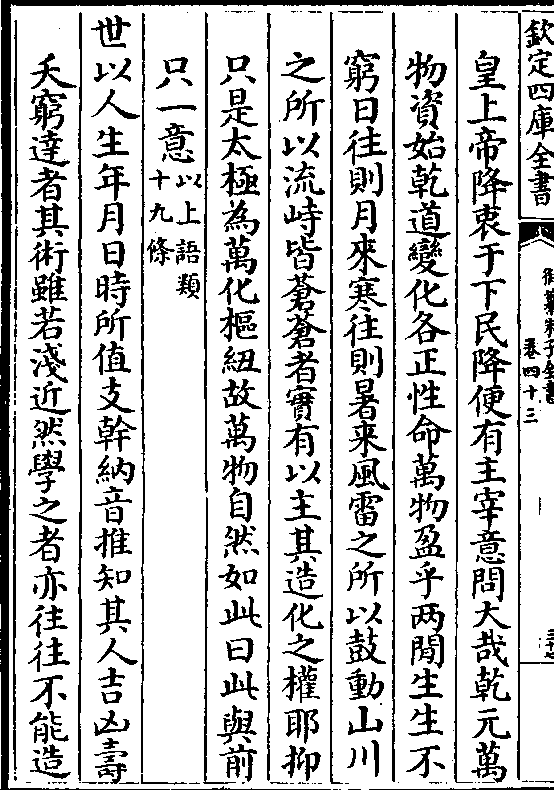 欽定四庫全書
卷四十三
皇上帝降衷于下民降便有主宰意問大哉乾元萬
物資始乾道變化各正性命萬物盈乎两間生生不
窮日往則月來寒往則暑來風雷之所以鼓動山川
之所以流峙皆蒼蒼者實有以主其造化之權耶抑
只是太極為萬化樞紐故萬物自然如此曰此與前
只一意以上語類十九條
世以人生年月日時所值支幹納音推知其人吉凶壽
夭窮達者其術雖若淺近然學之者亦往往不能造